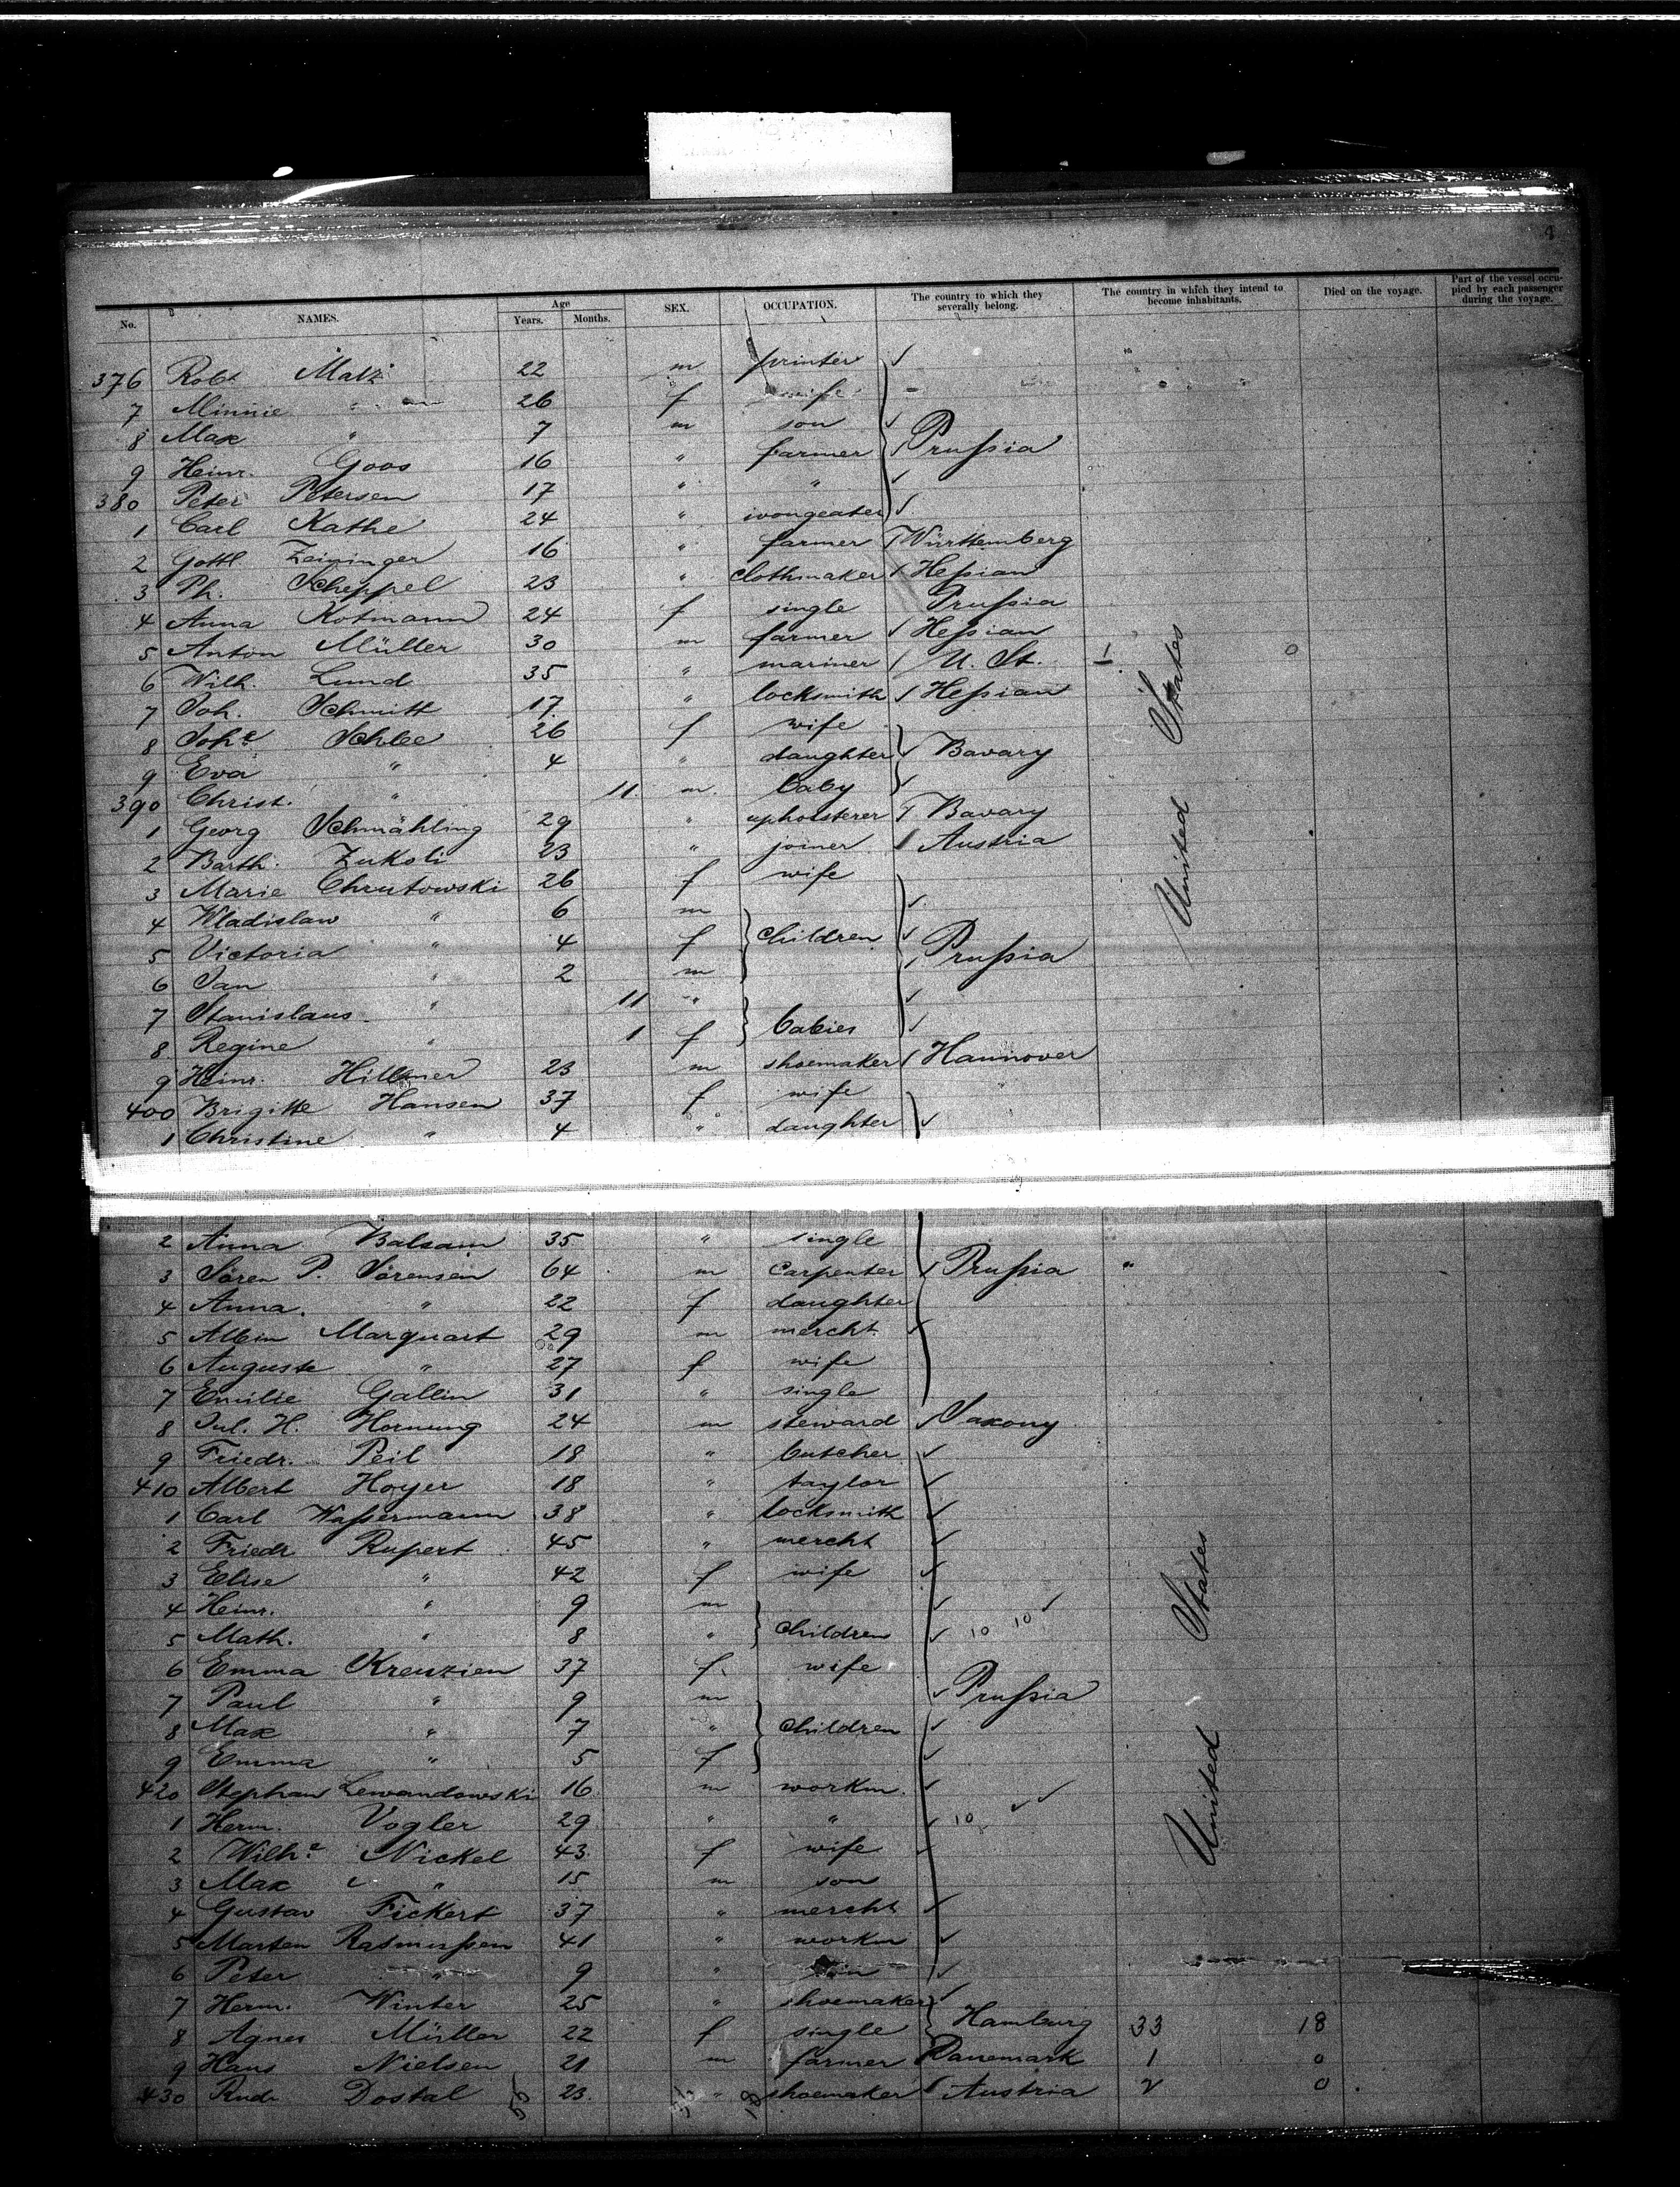 4
No. NAMES. Age Years. Months. SEX. OCCUPATION. The country to which they severally belong. The country in which they intend to become inhabitants. Died on the voyage. Part of the vessel occupied by each passenger during the voyage.
376 Robt Matz 22 m printer
7 Minnie " 26 f wife
8 Max " 7 m son
9 Heinr. Goos 16 " farmer Prußia
380 Peter Petersen 17 " "
1 Carl Kathe 24 "
2 Gottl. Zeininger 16 " farmer Württemberg
3 Ph. Scheppel 23 " clothmaker Heßian
4 Anna Kotmann 24 f single Prußia
5 Anton Müller 30 m farmer Heßian
6 Wilh. Lund 35 " mariner U. St. 1 0
7 Joh. Schmitt 17 " locksmith Heßian
8 Johe Schlee 26 f wife
9 Eva " 4 " daughter Bavary
390 Christ. " 11 m. baby
1 Georg Schmähling 29 " upholsterer Bavary
2 Barth. Zukoli 23 " joiner Austria
United States
3 Marie Chrutowski 26 f wife
4 Wladislaw " 6 m
5 Victoria " 4 f children Prußia
6 Jan " 2 m
7 Stanislaus " 11 "
8 Regine " 1 f babies
9 Heinr. Hillmer 23 m shoemaker Hannover
400 Brigitte Hansen 37 f wife
1 Christine " 4 " daughter
2 Anna Balsam 35 " single
3 Sören P. Sörensen 64 m carpenter Prußia "
4 Anna. " 22 f daughter
5 Albin Marquart 29 m mercht
6 Auguste " 27 f wife
7 Emilie Gallin 31 " single
8 Jul. H. Hornung 24 m steward Saxony
9 Friedr. Peil 18 " butcher
410 Albert Hoyer 18 " taylor
1 Carl Waßermann 38 " locksmith
2 Friedr Rupert 45 " mercht
3 Elise " 42 f wife
4 Heinr. " 9 m
5 Math. " 8 " children 10 10
6 Emma Kreuzien 37 f. wife
7 Paul " 9 m Prußia
8 Max " 7 " children
9 Emma " 5 f
United States
420 Stephan Lewandowski 16 m workm.
1 Herm. Vogler 29 " " 10
2 Wilhe Nickel 43 f wife
3 Max " 15 m son
4 Gustav Fickert 37 " mercht
5 Marten Rasmußen 41 " workm
6 Peter " 9 "
7 Herm. Winter 25 " shoemaker
8 Agnes Müller 22 f single Hamburg 33 18
9 Hans Nielsen 21 m farmer Danemark 1 0
430 Rud. Dostal 23. " shoemaker Austria 2 0